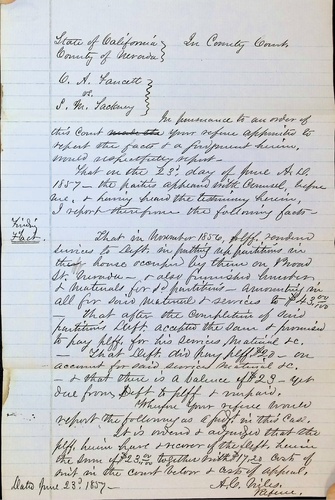 State of California } In County Court
County of Nevada }
C. A. Fancett
vs.
S. M. Lackney
In pursuance to an order of
this Court made the your referee appointed to
report the facts & a judgment herein,
would respectfully report —
That on the 23d day of June A.D.
1857 — the parties appeared with Counsel, before
me, & having heard the testimony herein,
I report therefrom the following facts —
Finding
of
Fact.
That in November 1856, plff. rendered
services to deft. in putting up partitions in
the house occupied by them on Broad
St. Nevada — & also furnished lumber
& materials for sd partitions — amounting in
all for said material & services to $43.00/100
— That after the completion of said
partitions deft. accepted the same & promised
to pay plff. for his services material &c.
— That deft. did pay plff. $20 — on
account for said services material &c.
— & that there is a balance of $23 — yet
due from deft to plff & unpaid.
Wherefore your referee would
report the following as a judgt in this case.
It is ordered & adjudged that the
plff. herein have & recover of the deft. herein
the sum of $23.00/100 together with $17.20 costs of
suit in the court below & costs of appeal,
A. C. Niles.
Dated June 23d 1857 — Referee.